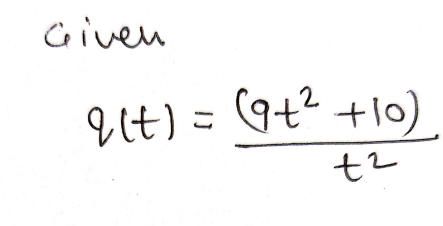 Given
q(t) = (9t² + 10) / t²